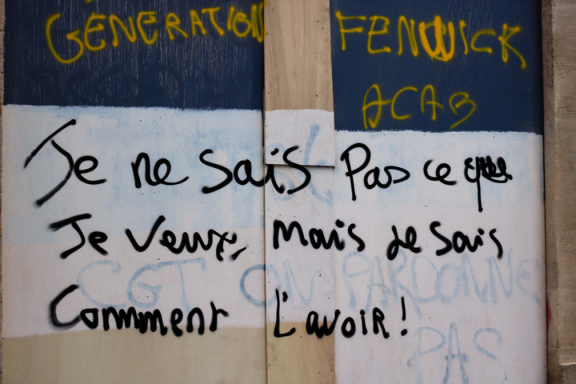 GÉNÉRATION FENWICK
ACAB
Je ne sais Pas ce que
Je Veux, mais je sais
CGT ON PARDONNE
Comment L'avoir!
PAS